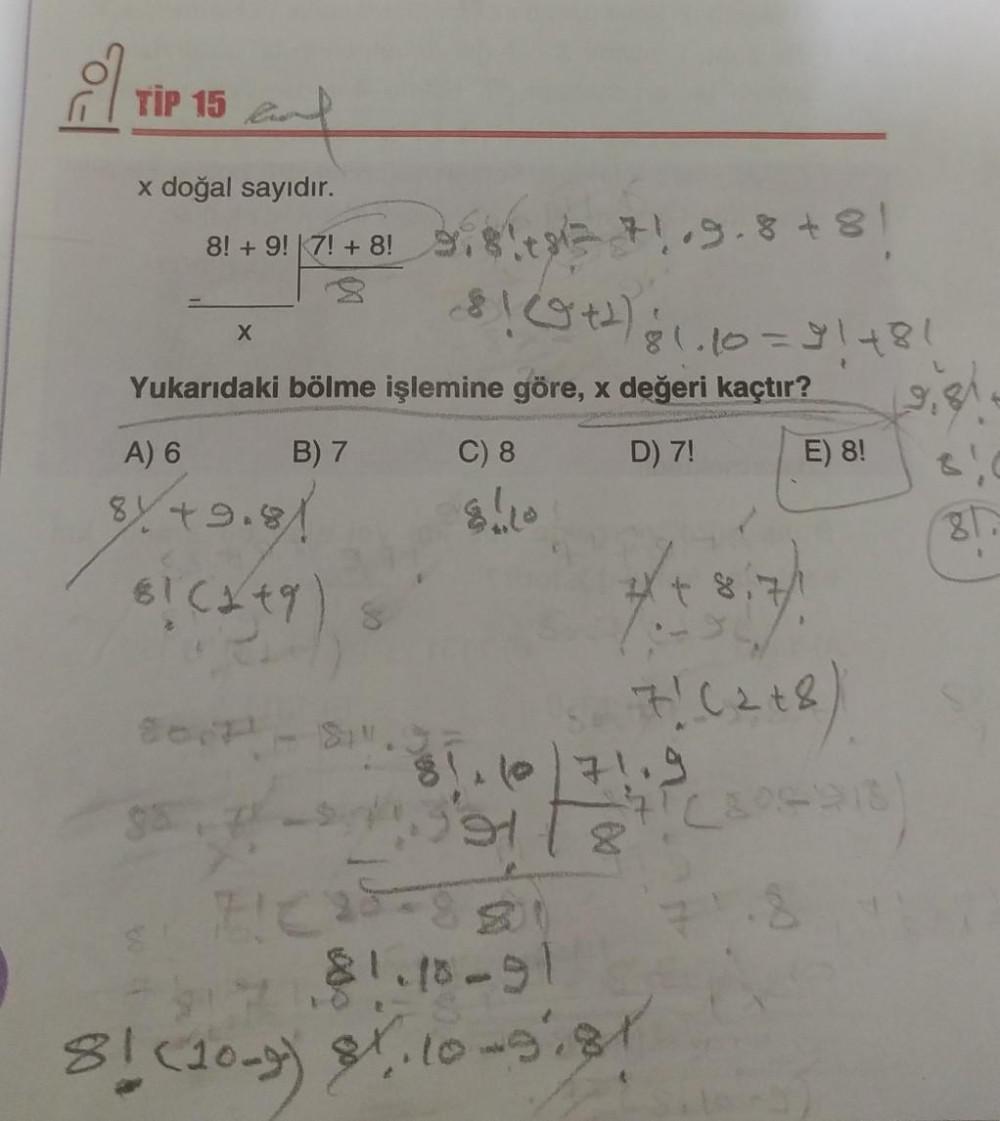 TİP 15
x doğal sayıdır.
8! + 9! 7! + 8!
8
x
9.8!+8!= 7!.9.8+8!
8!(9+1)
8!.10=9!+8!
Yukarıdaki bölme işlemine göre, x değeri kaçtır?
A) 6 B) 7 C) 8 D) 7! E) 8!
9.8!+
8!(
8!.
8!+9.8!
8!.10
8!(1+9) 8
7!+8.7!
7!(1+8)
8!.10 7!.9
9! 8
8!
8!.10-9!
8!(10-9) 8!.10-9.8!